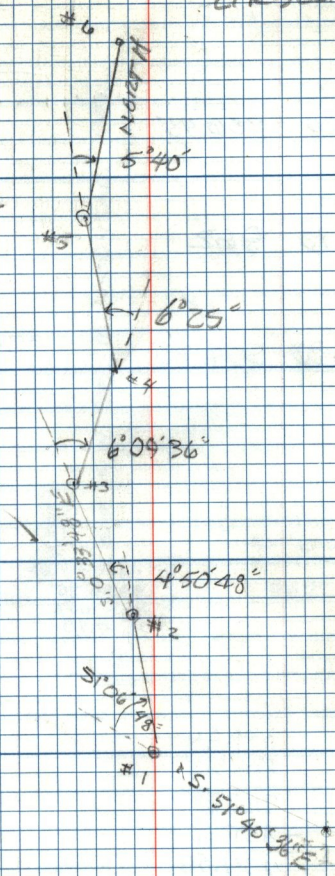 #6
NORTH
5°40'
#5
6°25"
#4
6°09'36"
#3
S.0°33'48"E
4°50'48"
#2
51°06'48"
#1
S. 51°40'36"E